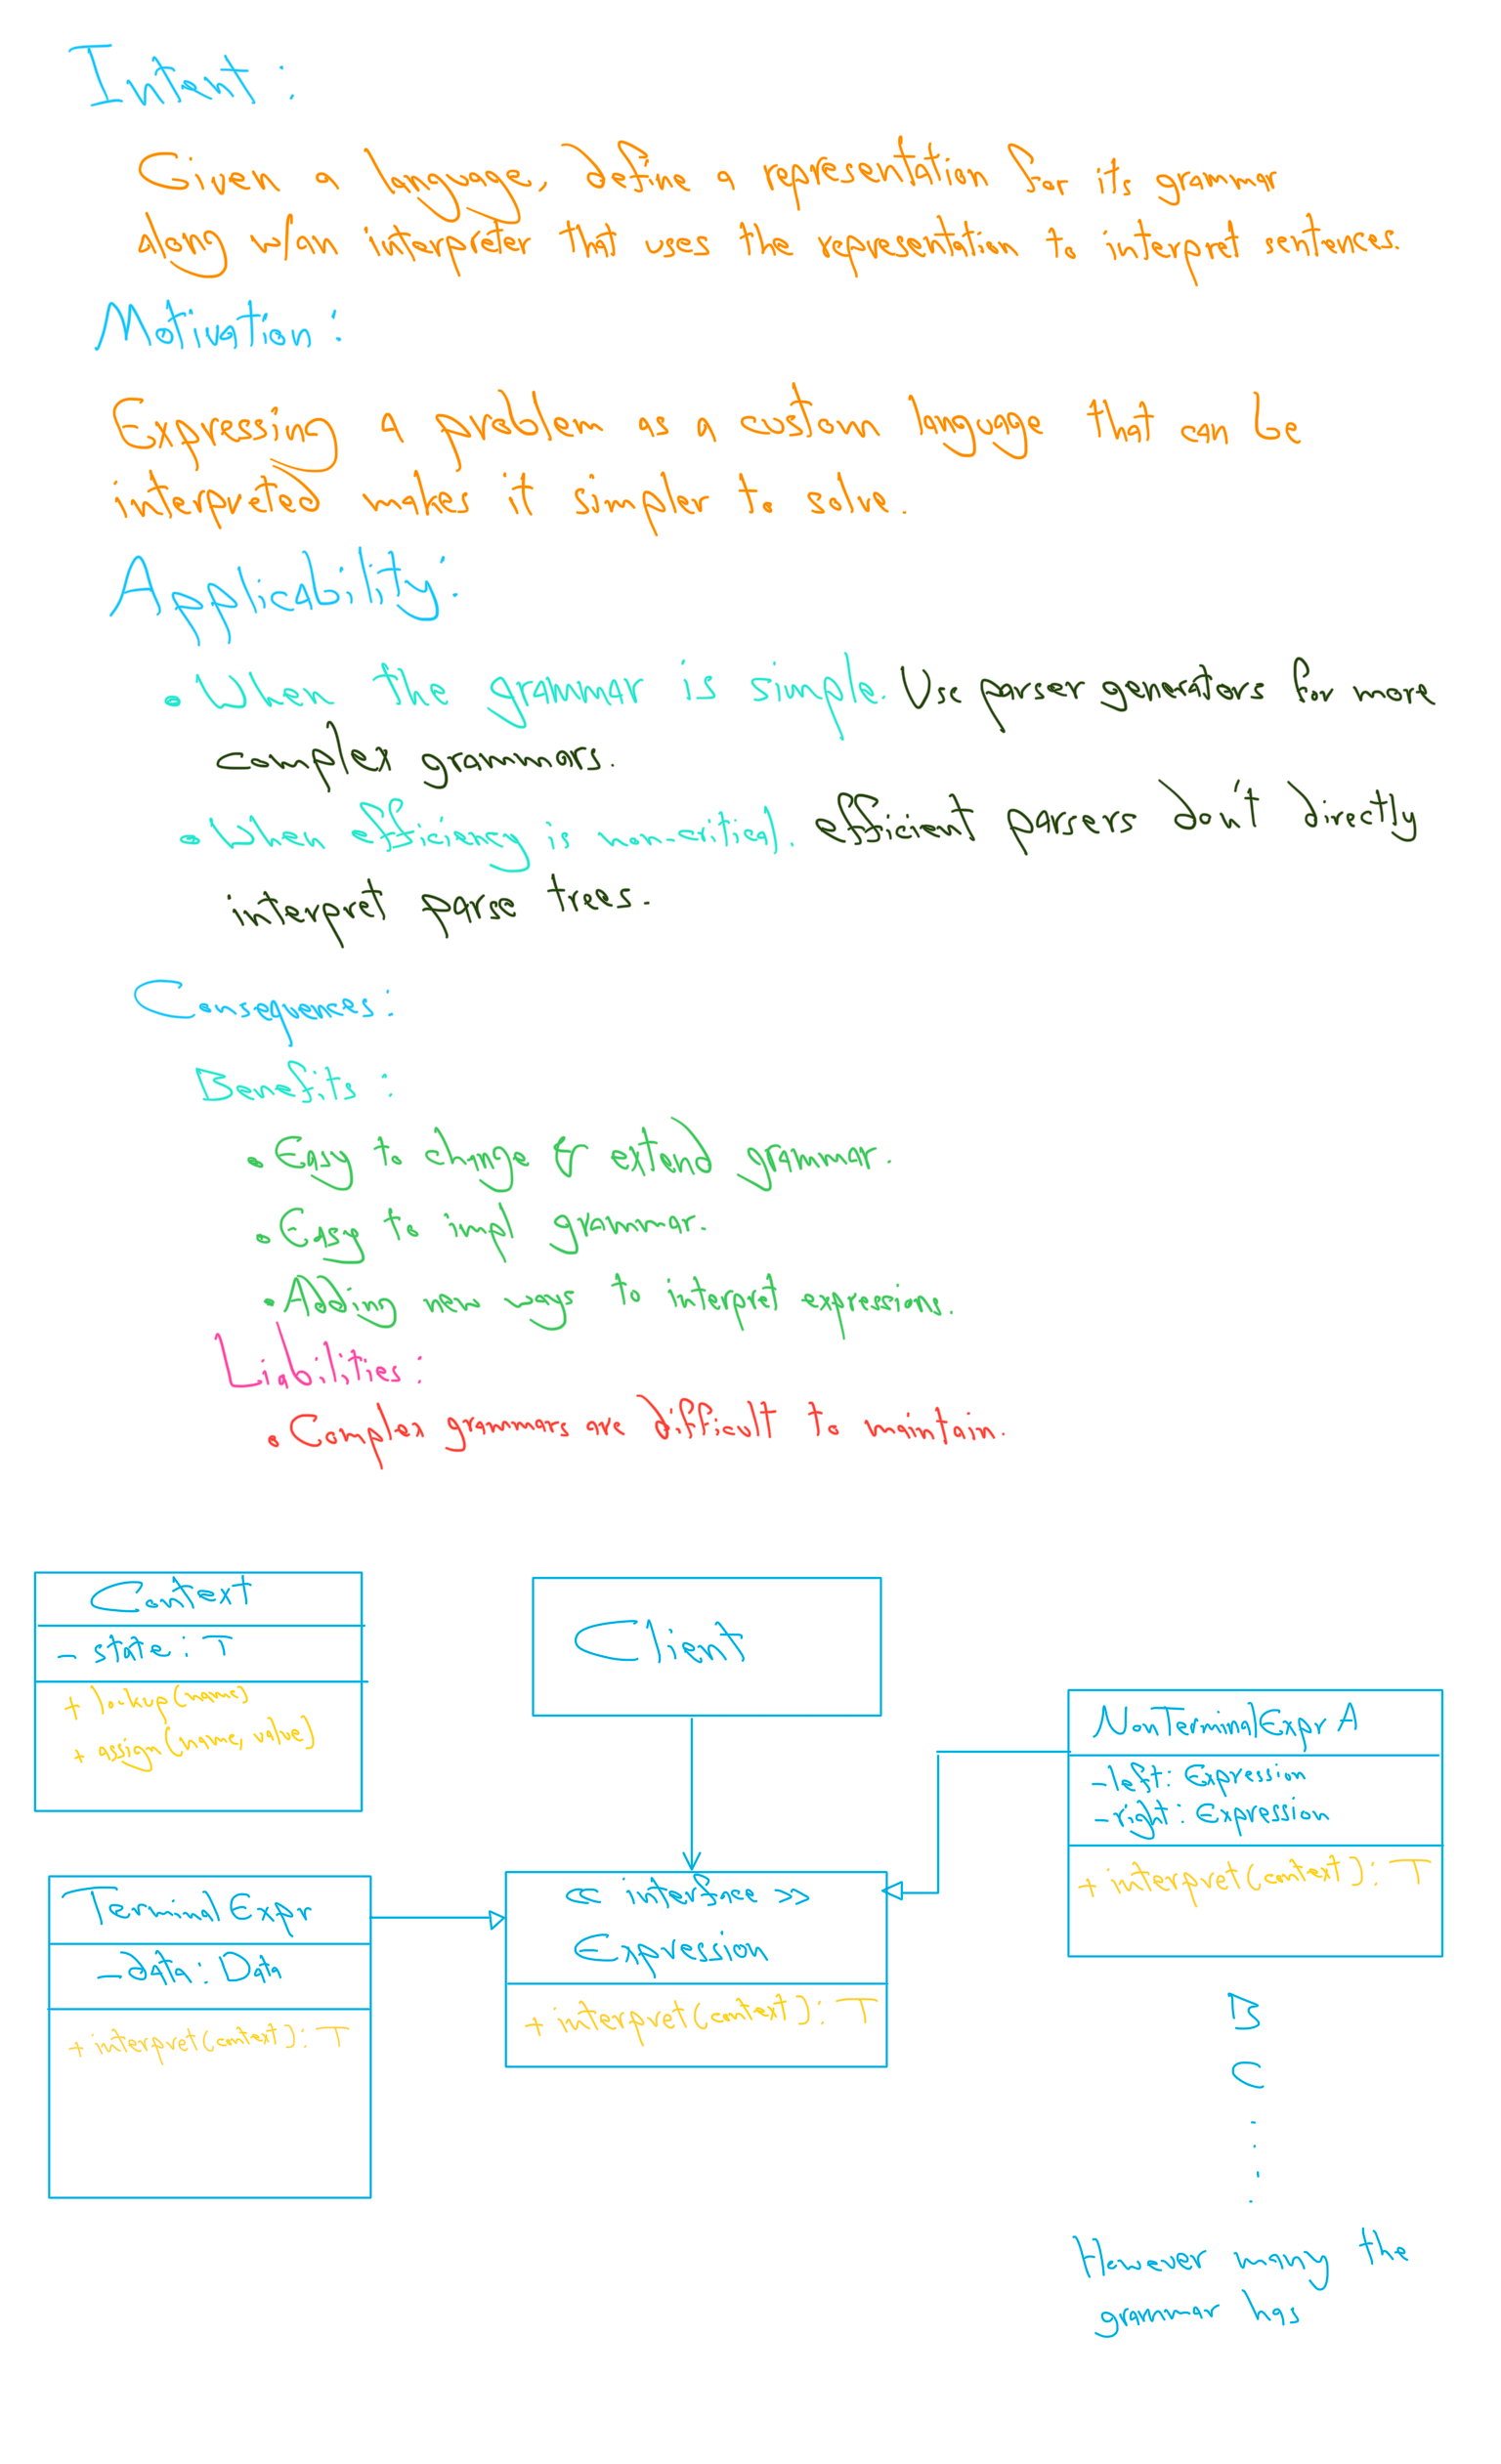 Intent:
Given a language, define a representation for its grammar
along w/an interpreter that uses the representation to interpret sentences.
Motivation:
Expressing a problem as a custom language that can be
interpreted makes it simpler to solve.
Applicability:
• When the grammar is simple. Use parser generators for more
complex grammars.
• When efficiency is non-critical. efficient parsers don't directly
interpret parse trees.
Consequences:
Benefits:
• Easy to change & extend grammar.
• Easy to impl grammar.
• Adding new ways to interpret expressions.
Liabilities:
• Complex grammars are difficult to maintain.
Context
- state: T
+ lookup(name)
+ assign(name, value)
Client
NonTerminalExpr A
- left: Expression
- right: Expression
+ interpret(context): T
TerminalExpr
- data: Data
+ interpret(context): T
<< interface >>
Expression
+ interpret(context): T
B
C
However many the
grammar has